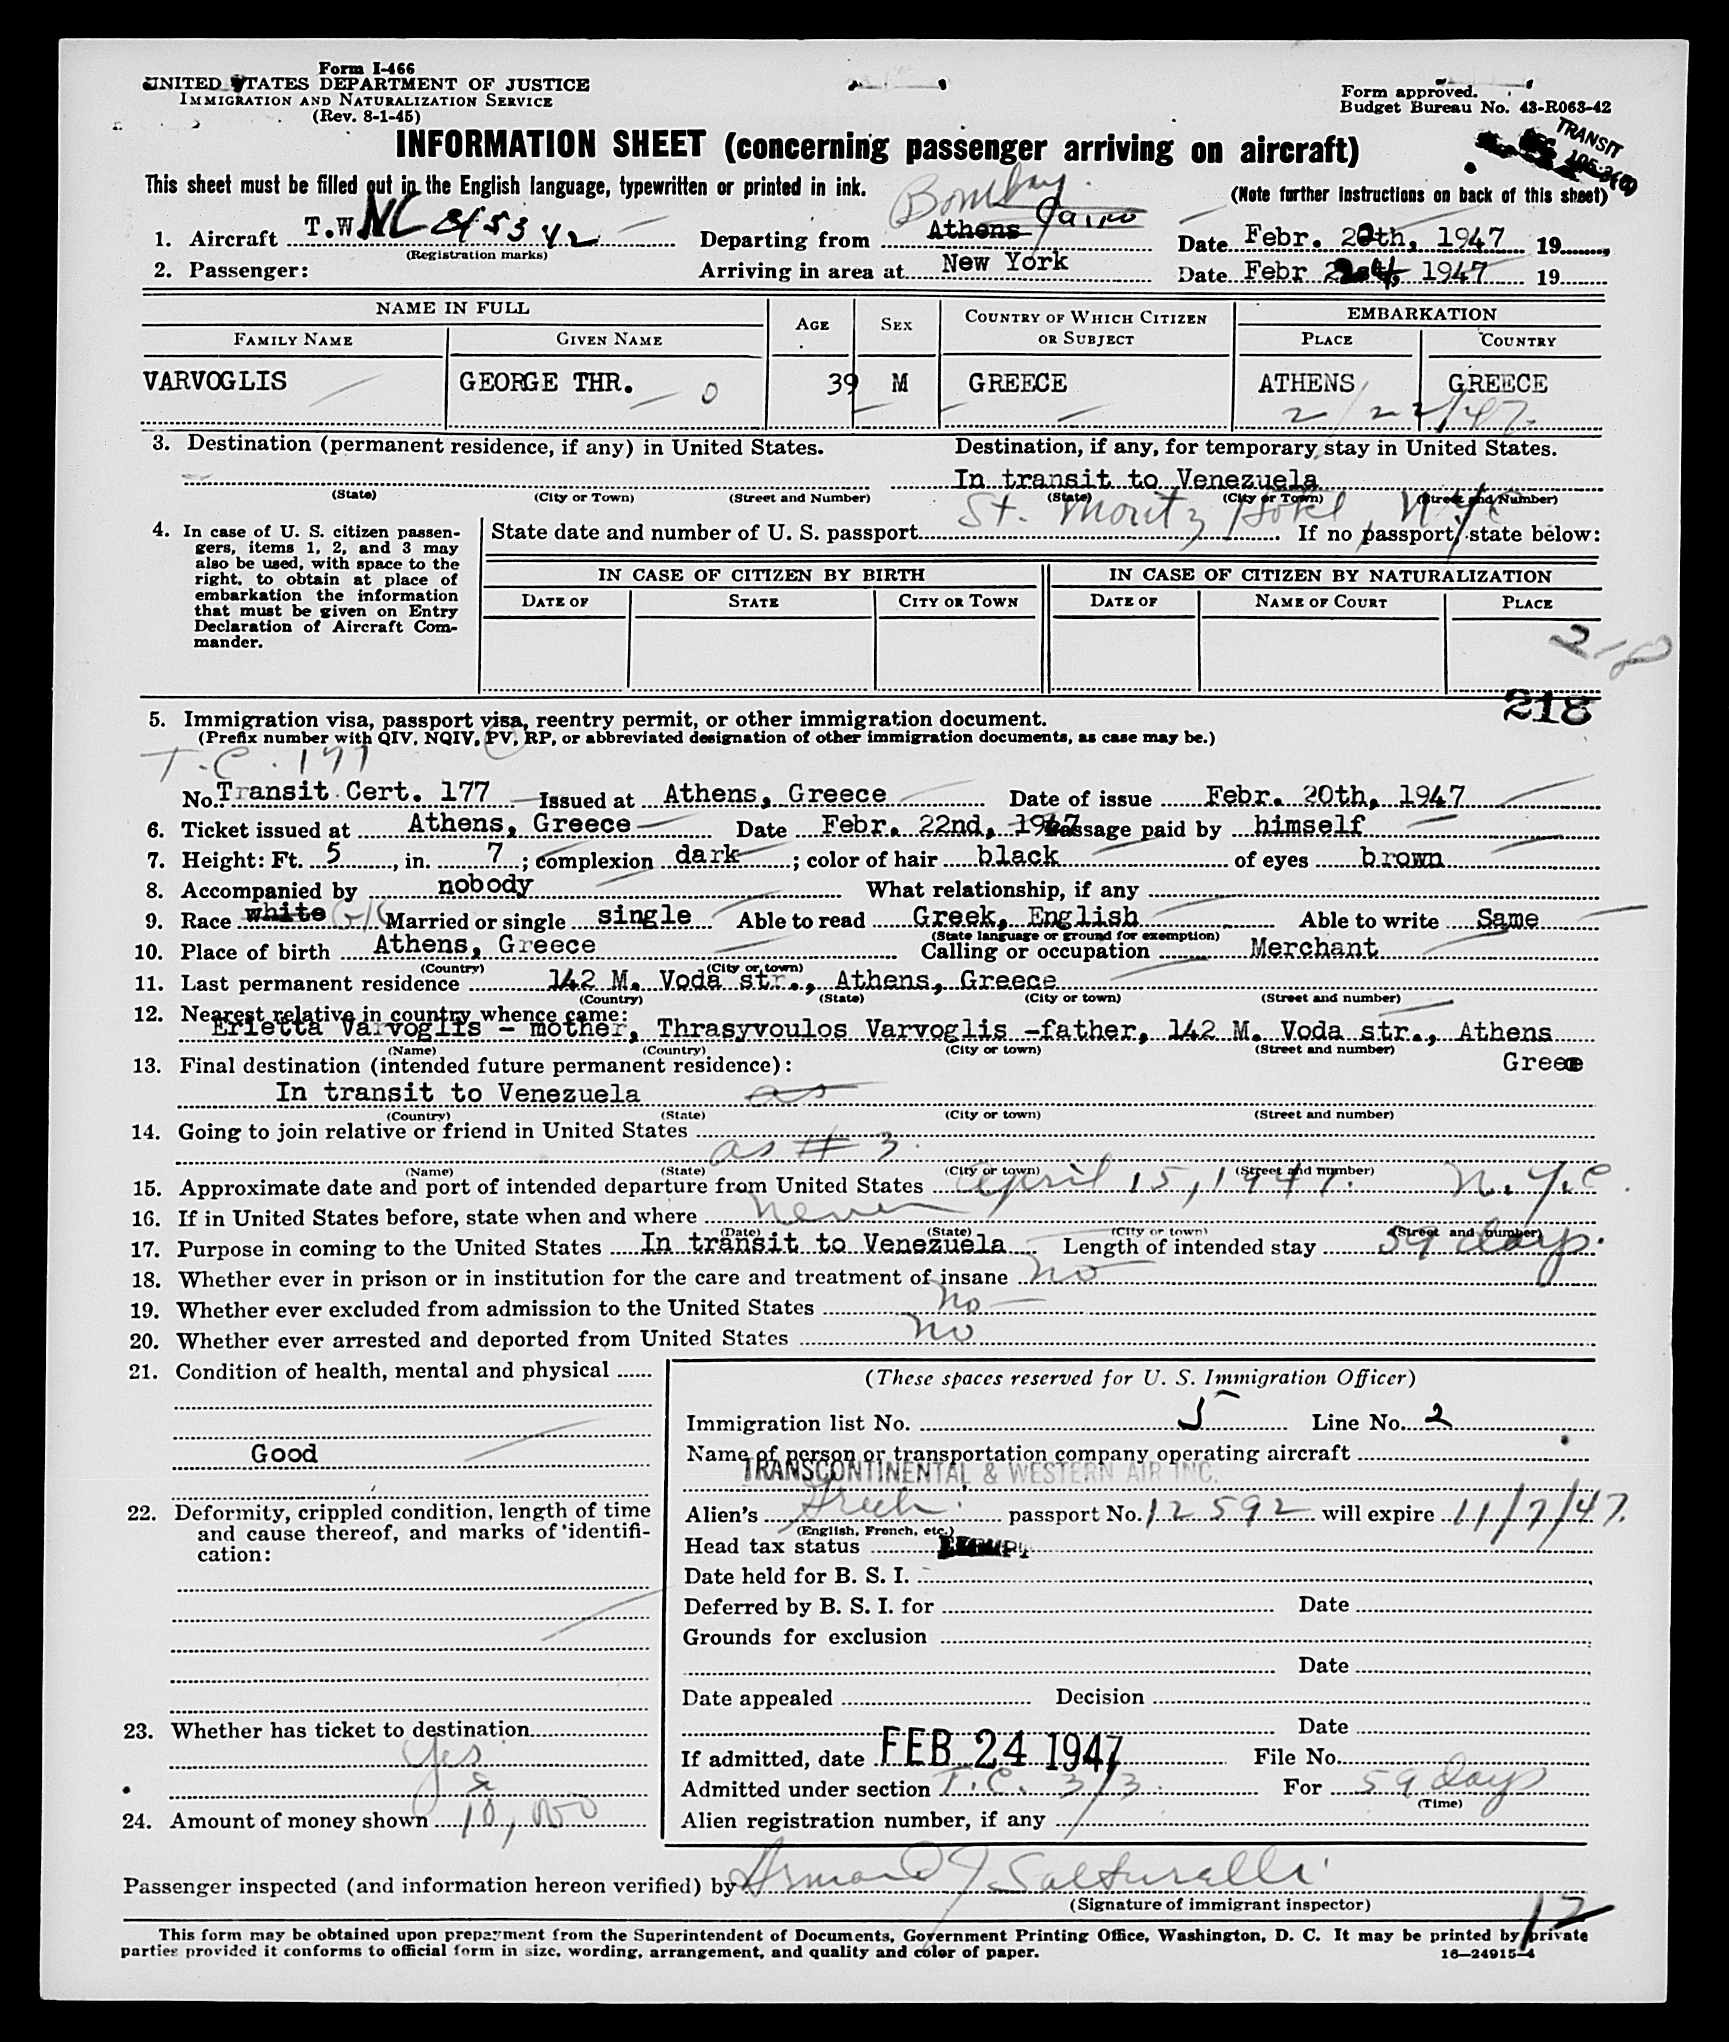 Form I-466
UNITED STATES DEPARTMENT OF JUSTICE
IMMIGRATION AND NATURALIZATION SERVICE
(Rev. 8-1-45)
Form approved.
Budget Bureau No. 43-R063-42
TRANSIT
INFORMATION SHEET (concerning passenger arriving on aircraft)
This sheet must be filled out in the English language, typewritten or printed in ink.
(Note further instructions on back of this sheet)
Bombay.
1. Aircraft T.W NC 45342 Departing from Athens Cairo Date Febr. 20th, 1947 19
(Registration marks)
2. Passenger: Arriving in area at New York Date Febr 1947 19
NAME IN FULL AGE SEX COUNTRY OF WHICH CITIZEN OR SUBJECT EMBARKATION
FAMILY NAME GIVEN NAME PLACE COUNTRY
VARVOGLIS GEORGE THR. 39 M GREECE ATHENS GREECE
2/22/47.
3. Destination (permanent residence, if any) in United States. Destination, if any, for temporary stay in United States.
In transit to Venezuela
(State) (City or Town) (Street and Number) (State) (City or Town) (Street and Number)
St. Moritz Hotel NYC
4. In case of U. S. citizen passengers, items 1, 2, and 3 may also be used, with space to the right, to obtain at place of embarkation the information that must be given on Entry Declaration of Aircraft Commander.
State date and number of U. S. passport If no passport, state below:
IN CASE OF CITIZEN BY BIRTH IN CASE OF CITIZEN BY NATURALIZATION
DATE OF STATE CITY OR TOWN DATE OF NAME OF COURT PLACE
218
218
5. Immigration visa, passport visa, reentry permit, or other immigration document.
(Prefix number with QIV, NQIV, PV, RP, or abbreviated designation of other immigration documents, as case may be.)
T.C. 177
No. Transit Cert. 177 Issued at Athens, Greece Date of issue Febr. 20th, 1947
6. Ticket issued at Athens, Greece Date Febr. 22nd, 1947 Passage paid by himself
7. Height: Ft. 5, in. 7; complexion dark; color of hair black of eyes brown
8. Accompanied by nobody What relationship, if any
9. Race white Gk Married or single single Able to read Greek, English Able to write Same
(State language or ground for exemption)
10. Place of birth Athens, Greece Calling or occupation Merchant
(Country) (City or town)
11. Last permanent residence 142 M. Voda str., Athens, Greece
(Country) (State) (City or town) (Street and number)
12. Nearest relative in country whence came:
Erietta Varvoglis - mother, Thrasyvoulos Varvoglis -father, 142 M. Voda str., Athens
(Name) (Country) (City or town) (Street and number)
Greece
13. Final destination (intended future permanent residence):
In transit to Venezuela as
(Country) (State) (City or town) (Street and number)
14. Going to join relative or friend in United States
as # 3.
(Name) (State) (City or town) (Street and number)
15. Approximate date and port of intended departure from United States April 15, 1947. N.Y.C.
16. If in United States before, state when and where never
(Date) (State) (City or town) (Street and number)
17. Purpose in coming to the United States In transit to Venezuela Length of intended stay 59 days.
18. Whether ever in prison or in institution for the care and treatment of insane no
19. Whether ever excluded from admission to the United States no
20. Whether ever arrested and deported from United States no
21. Condition of health, mental and physical
Good
22. Deformity, crippled condition, length of time and cause thereof, and marks of identification:
23. Whether has ticket to destination
yes
24. Amount of money shown 10,000
(These spaces reserved for U. S. Immigration Officer)
Immigration list No. 5 Line No. 2
Name of person or transportation company operating aircraft
TRANSCONTINENTAL & WESTERN AIR INC.
Alien's Greek passport No. 12592 will expire 11/7/47.
(English, French, etc.)
Head tax status EXEMPT
Date held for B. S. I.
Deferred by B. S. I. for Date
Grounds for exclusion
Date
Date appealed Decision
Date
If admitted, date FEB 24 1947 File No.
Admitted under section T.C. 3/3 For 59 days
(Time)
Alien registration number, if any
Passenger inspected (and information hereon verified) by Armand J. Salturelli
(Signature of immigrant inspector)
12
This form may be obtained upon prepayment from the Superintendent of Documents, Government Printing Office, Washington, D. C. It may be printed by private
parties provided it conforms to official form in size, wording, arrangement, and quality and color of paper.
16—24915-4